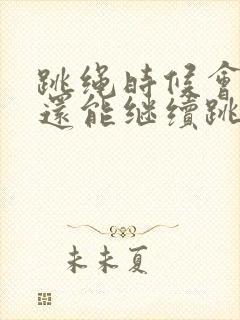 跳绳時候會
還能继續跳
未未夏